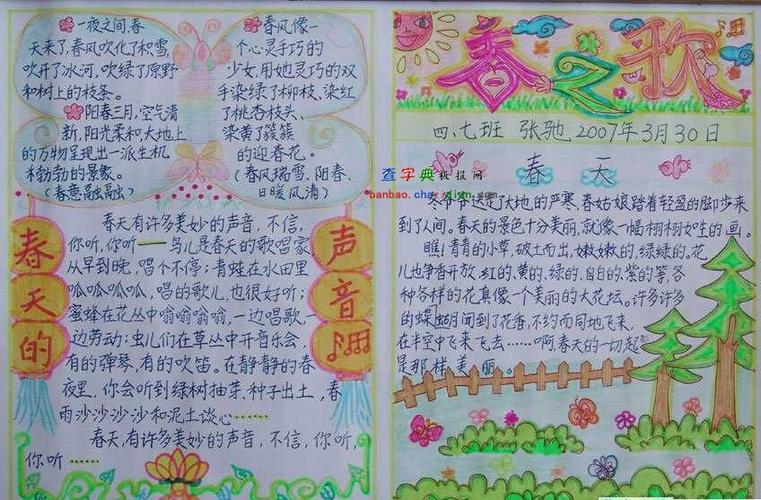 一夜之间,春
天来了,春风吹化了积雪,
吹开了冰河,吹绿了原野
和树上的枝条。
阳春三月,空气清
新,阳光柔和大地上
的万物呈现出一派生机
勃勃的景象。
(春意融融)
春风像一
个心灵手巧的
少女,用她灵巧的双
手染绿了柳枝、染红
了桃杏枝头、
染黄了簇簇
的迎春花。
(春风瑞雪,阳春、
日暖风清)
春天的
声音
春天有许多美妙的声音,不信,
你听,你听——鸟儿是春天的歌唱家,
从早到晚,唱个不停;青蛙在水田里
呱呱呱呱,唱的歌儿,也很好听;
蜜蜂在花丛中嗡嗡嗡嗡,一边唱歌,一
边劳动;虫儿们在草丛中开音乐会,
有的弹琴,有的吹笛。在静静的春
夜里,你会听到绿树抽芽,种子出土,春
雨沙沙沙沙和泥土谈心……
春天,有许多美妙的声音,不信,你听,
你听……
春之歌
四、七班 张驰 2007年3月30日
春 天
查字典 板报网
banbao.chazidian.com
冬爷爷送走了大地的严寒、春姑娘踏着轻盈的脚步来
到了人间。春天的景色十分美丽,就像一幅栩栩如生的画。
瞧!青青的小草,破土而出,嫩嫩的,绿绿的。花
儿也争香开放,红的、黄的、绿的、白的、紫的等,各
种各样的花真像一个美丽的大花坛。许多许多
的蝴蝶闻到了花香,不约而同地飞来,
在半空中飞来飞去……啊春天的一切起
是那样美丽。